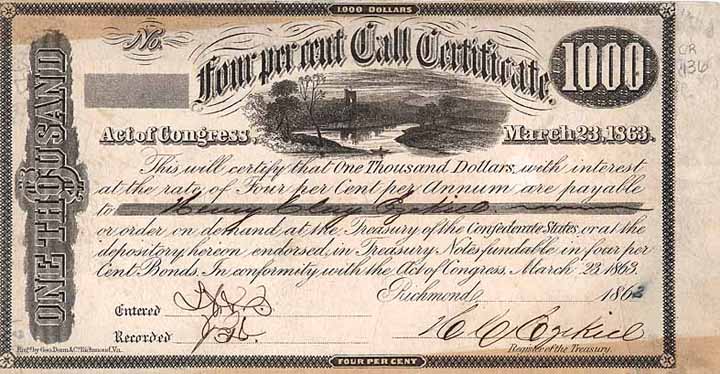 1.000 DOLLARS
No.
Four per cent Call Certificate.
1000
ONE THOUSAND
Act of Congress March 23, 1863.
This will certify that One Thousand Dollars, with interest
at the rate of Four per Cent per Annum are payable
to Henry Clay Ezekiel
or order on demand, at the Treasury of the Confederate States, or at the
depository, hereon endorsed, in Treasury Notes fundable in four per
Cent Bonds. In conformity with the Act of Congress, March 23, 1863.
Richmond, 1863
Entered
Recorded
H C Ezekiel
Register of the Treasury.
Eng'd by Geo. Dunn & Co. Richmond, Va.
FOUR PER CENT
CR